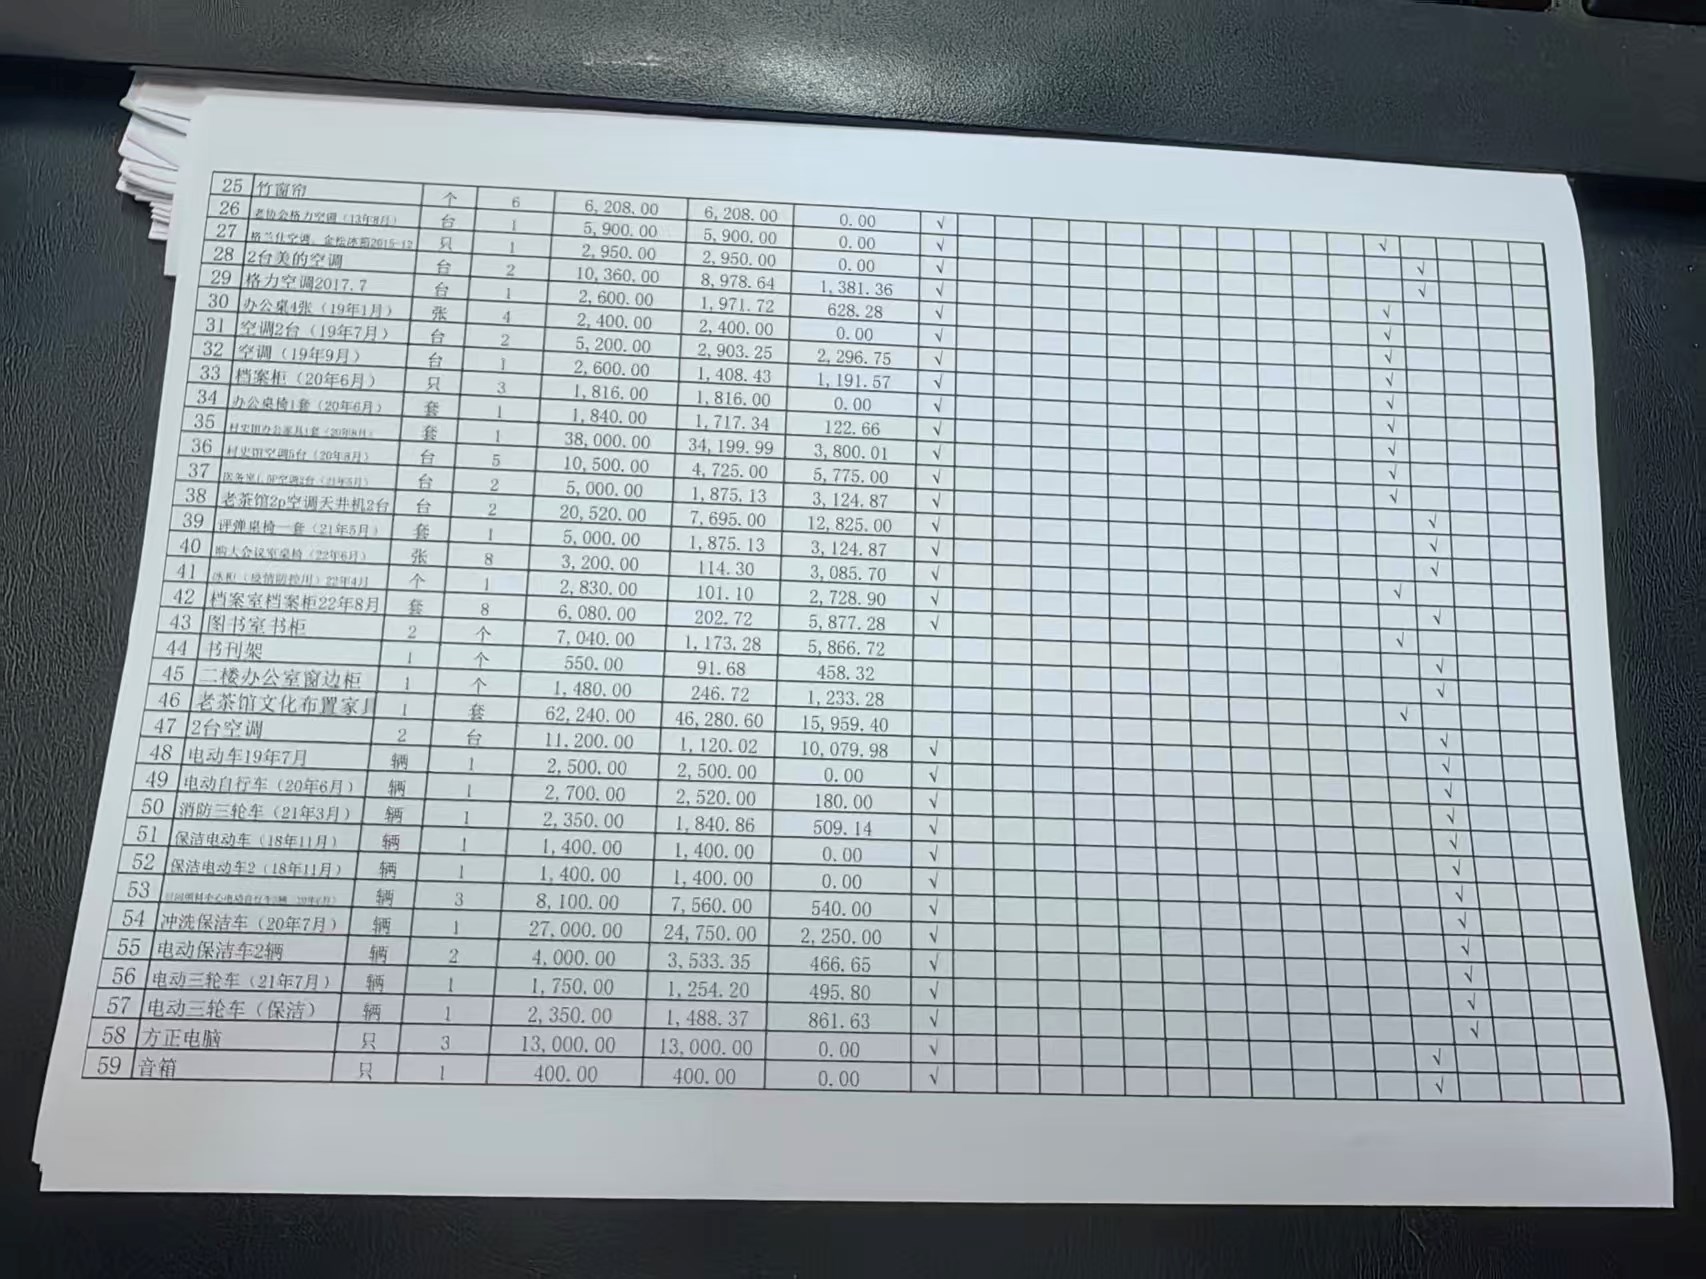 25 竹窗帘 个 6 6,208.00 6,208.00 0.00 √ √
26 老协会格力空调（13年8月） 台 1 5,900.00 5,900.00 0.00 √ √
27 格兰仕空调、金松冰箱2015-12 只 1 2,950.00 2,950.00 0.00 √ √
28 2台美的空调 台 2 10,360.00 8,978.64 1,381.36 √ √
29 格力空调2017.7 台 1 2,600.00 1,971.72 628.28 √ √
30 办公桌4张（19年1月） 张 4 2,400.00 2,400.00 0.00 √ √
31 空调2台（19年7月） 台 2 5,200.00 2,903.25 2,296.75 √ √
32 空调（19年9月） 台 1 2,600.00 1,408.43 1,191.57 √ √
33 档案柜（20年6月） 只 3 1,816.00 1,816.00 0.00 √ √
34 办公桌椅1套（20年6月） 套 1 1,840.00 1,717.34 122.66 √ √
35 村史馆办公家具1套（20年8月） 套 1 38,000.00 34,199.99 3,800.01 √ √
36 村史馆空调5台（20年8月） 台 5 10,500.00 4,725.00 5,775.00 √ √
37 医务室1.5P空调2台（21年5月） 台 2 5,000.00 1,875.13 3,124.87 √ √
38 老茶馆2p空调天井机2台 台 2 20,520.00 7,695.00 12,825.00 √ √
39 评弹桌椅一套（21年5月） 套 1 5,000.00 1,875.13 3,124.87 √ √
40 购大会议室桌椅（22年6月） 张 8 3,200.00 114.30 3,085.70 √ √
41 冰柜（疫情防控用）22年4月 个 1 2,830.00 101.10 2,728.90 √ √
42 档案室档案柜22年8月 套 8 6,080.00 202.72 5,877.28 √ √
43 图书室书柜 2 个 7,040.00 1,173.28 5,866.72 √
44 书刊架 1 个 550.00 91.68 458.32 √
45 二楼办公室窗边柜 1 个 1,480.00 246.72 1,233.28 √
46 老茶馆文化布置家具 1 套 62,240.00 46,280.60 15,959.40 √
47 2台空调 2 台 11,200.00 1,120.02 10,079.98 √ √
48 电动车19年7月 辆 1 2,500.00 2,500.00 0.00 √ √
49 电动自行车（20年6月） 辆 1 2,700.00 2,520.00 180.00 √ √
50 消防三轮车（21年3月） 辆 1 2,350.00 1,840.86 509.14 √ √
51 保洁电动车（18年11月） 辆 1 1,400.00 1,400.00 0.00 √ √
52 保洁电动车2（18年11月） 辆 1 1,400.00 1,400.00 0.00 √ √
53 辆 3 8,100.00 7,560.00 540.00 √ √
54 冲洗保洁车（20年7月） 辆 1 27,000.00 24,750.00 2,250.00 √ √
55 电动保洁车2辆 辆 2 4,000.00 3,533.35 466.65 √ √
56 电动三轮车（21年7月） 辆 1 1,750.00 1,254.20 495.80 √ √
57 电动三轮车（保洁） 辆 1 2,350.00 1,488.37 861.63 √ √
58 方正电脑 只 3 13,000.00 13,000.00 0.00 √ √
59 音箱 只 1 400.00 400.00 0.00 √ √